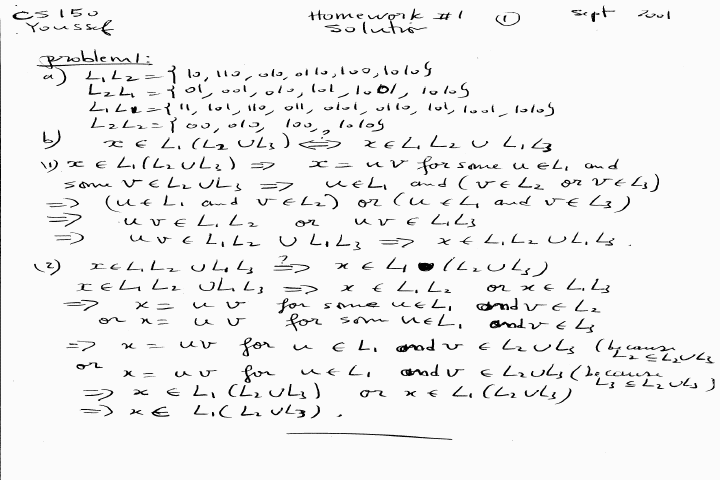 CS 150 Homework #1 ① Sept 2001
Youssef Solution
problem1:
a) L₁L₂ = { 10, 110, 010, 0110, 100, 1010}
L₂L₁ = { 01, 001, 010, 101, 1001, 1010}
L₁L₁ = { 11, 101, 110, 011, 0101, 0110, 101, 1001, 1010}
L₂L₂ = { 00, 010, 100, 1010}
b) x ∈ L₁(L₂∪L₃) ⟺ x ∈ L₁L₂ ∪ L₁L₃
(1) x ∈ L₁(L₂∪L₃) ⇒ x = uv for some u∈L₁ and
some v ∈ L₂∪L₃ ⇒ u∈L₁ and (v∈L₂ or v∈L₃)
⇒ (u∈L₁ and v∈L₂) or (u∈L₁ and v∈L₃)
⇒ uv ∈ L₁L₂ or uv ∈ L₁L₃
⇒ uv ∈ L₁L₂ ∪ L₁L₃ ⇒ x ∈ L₁L₂∪L₁L₃ .
(2) x∈L₁L₂ ∪L₁L₃ ?⇒ x ∈ L₁ (L₂∪L₃)
x∈L₁L₂ ∪L₁L₃ ⇒ x ∈ L₁L₂ or x∈ L₁L₃
⇒ x = uv for some u∈L₁ and v∈L₂
or x = uv for some u∈L₁ and v∈L₃
⇒ x = uv for u∈L₁ and v ∈ L₂∪L₃ (because L₂⊆L₂∪L₃
or x = uv for u∈L₁ and v ∈ L₂∪L₃ (because L₃⊆L₂∪L₃)
⇒ x ∈ L₁(L₂∪L₃) or x∈L₁(L₂∪L₃)
⇒ x∈ L₁(L₂∪L₃) .